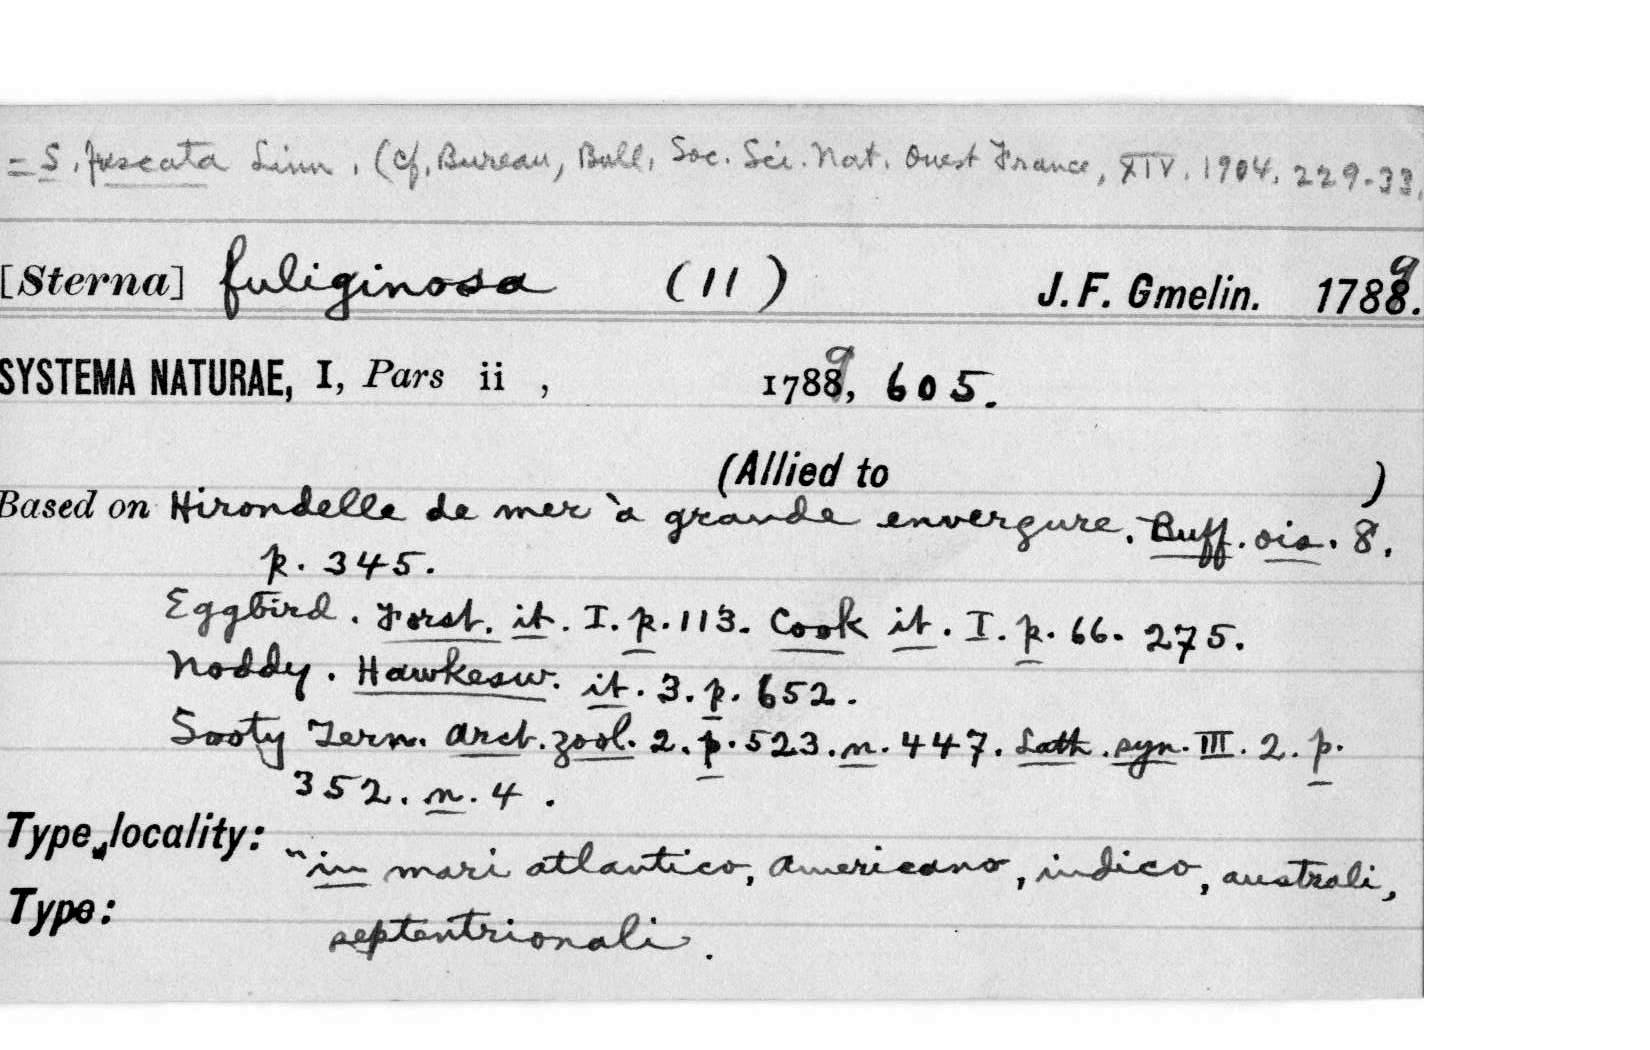 = S. fuscata Linn. (Cf. Bureau, Bull. Soc. Sci. Nat. Ouest France, XIV. 1904. 229-33.
[Sterna] fuliginosa (11) J. F. Gmelin. 1788.9
SYSTEMA NATURAE, I, Pars ii , 1788,9 605.
(Allied to )
Based on Hirondelle de mer à grande envergure. Buff. ois. 8.
p. 345.
Eggbird. Forst. it. I. p. 113. Cook it. I. p. 66. 275.
Noddy. Hawkesw. it. 3. p. 652.
Sooty Tern. Arct. zool. 2. p. 523. n. 447. Lath. syn. III. 2. p.
352. n. 4.
Type locality: "in mari atlantico, Americano, indico, australi,
Type: septentrionali.